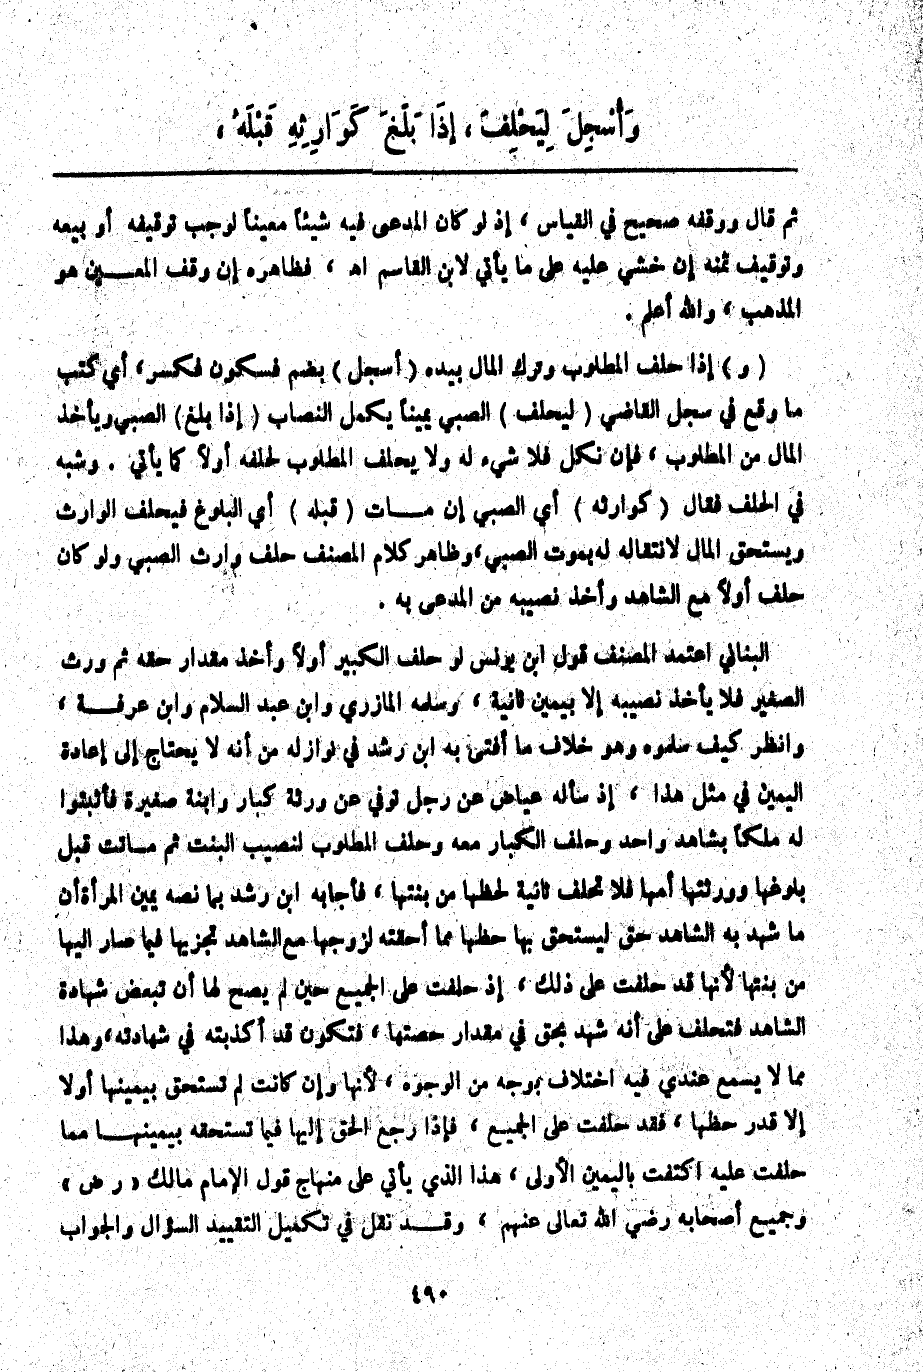 وَأُسْجِلَ لِيَحْلِفَ ، إِذَا بَلَغَ كَوَارِثِهِ قَبْلَهُ ،
ثم قال ووقفه صحيح في القياس ، إذ لو كان المدعى فيه شيئاً معيناً لوجب توقيفه أو بيعه
وتوقيف ثمنه إن خشي عليه على ما يأتي لابن القاسم اه ، فظاهره إن وقف المعـــين هو
المذهب ، والله أعلم .
( و ) إذا حلف المطلوب وترك المال بيده ( أسجل ) بضم فسكون فكسر، أي كتب
ما وقع في سجل القاضي ( ليحلف ) الصبي يميناً يكمل النصاب ( إذا بلغ) الصبي ويأخذ
المال من المطلوب ، فإن نكل فلا شيء له ولا يحلف المطلوب لحلفه أولاً كما يأتي . وشبه
في الحلف فقال ( كوارثه ) أي الصبي إن مـــات ( قبله ) أي البلوغ فيحلف الوارث
ويستحق المال لانتقاله له بموت الصبي، وظاهر كلام المصنف حلف وارث الصبي ولو كان
حلف أولاً مع الشاهد وأخذ نصيبه من المدعى به .
البناني اعتمد المصنف قول ابن يونس لو حلف الكبير أولاً وأخذ مقدار حقه ثم ورث
الصغير فلا يأخذ نصيبه إلا بيمين ثانية ، وسلمه المازري وابن عبد السلام وابن عرفـــة ،
وانظر كيف سلموه وهو خلاف ما أفتى به ابن رشد في نوازله من أنه لا يحتاج إلى إعادة
اليمين في مثل هذا ، إذ سأله عياض عن رجل توفي عن ورثة كبار وابنة صغيرة فأثبتوا
له ملكاً بشاهد واحد وحلف الكبار معه وحلف المطلوب لنصيب البنت ثم مـاتت قبل
بلوغها وورثتها أمها فلا تحلف ثانية لحظها من بنتها ، فأجابه ابن رشد بها نصه يمين المرأة أن
ما شهد به الشاهد حق ليستحق بها حظها مما أحقته لزوجها مع الشاهد تجزيها فيما صار اليها
من بنتها لأنها قد حلفت على ذلك ، إذ حلفت على الجميع حين لم يصح لها أن تبعض شهادة
الشاهد فتحلف على أنه شهد بحق في مقدار حصتها ، فتكون قد أكذبته في شهادته، وهذا
مما لا يسمع عندي فيه اختلاف بوجه من الوجوه ، لأنها وإن كانت لم تستحق بيمينها أولا
إلا قدر حظها ، فقد حلفت على الجميع ، فإذا رجع الحق إليها فيما تستحقه بيمينهـــا مما
حلفت عليه اكتفت باليمين الأولى ، هذا الذي يأتي على منهاج قول الإمام مالك « ر ض »
وجميع أصحابه رضي الله تعالى عنهم ، وقـــد نقل في تكميل التقييد السؤال والجواب
٤٩٠